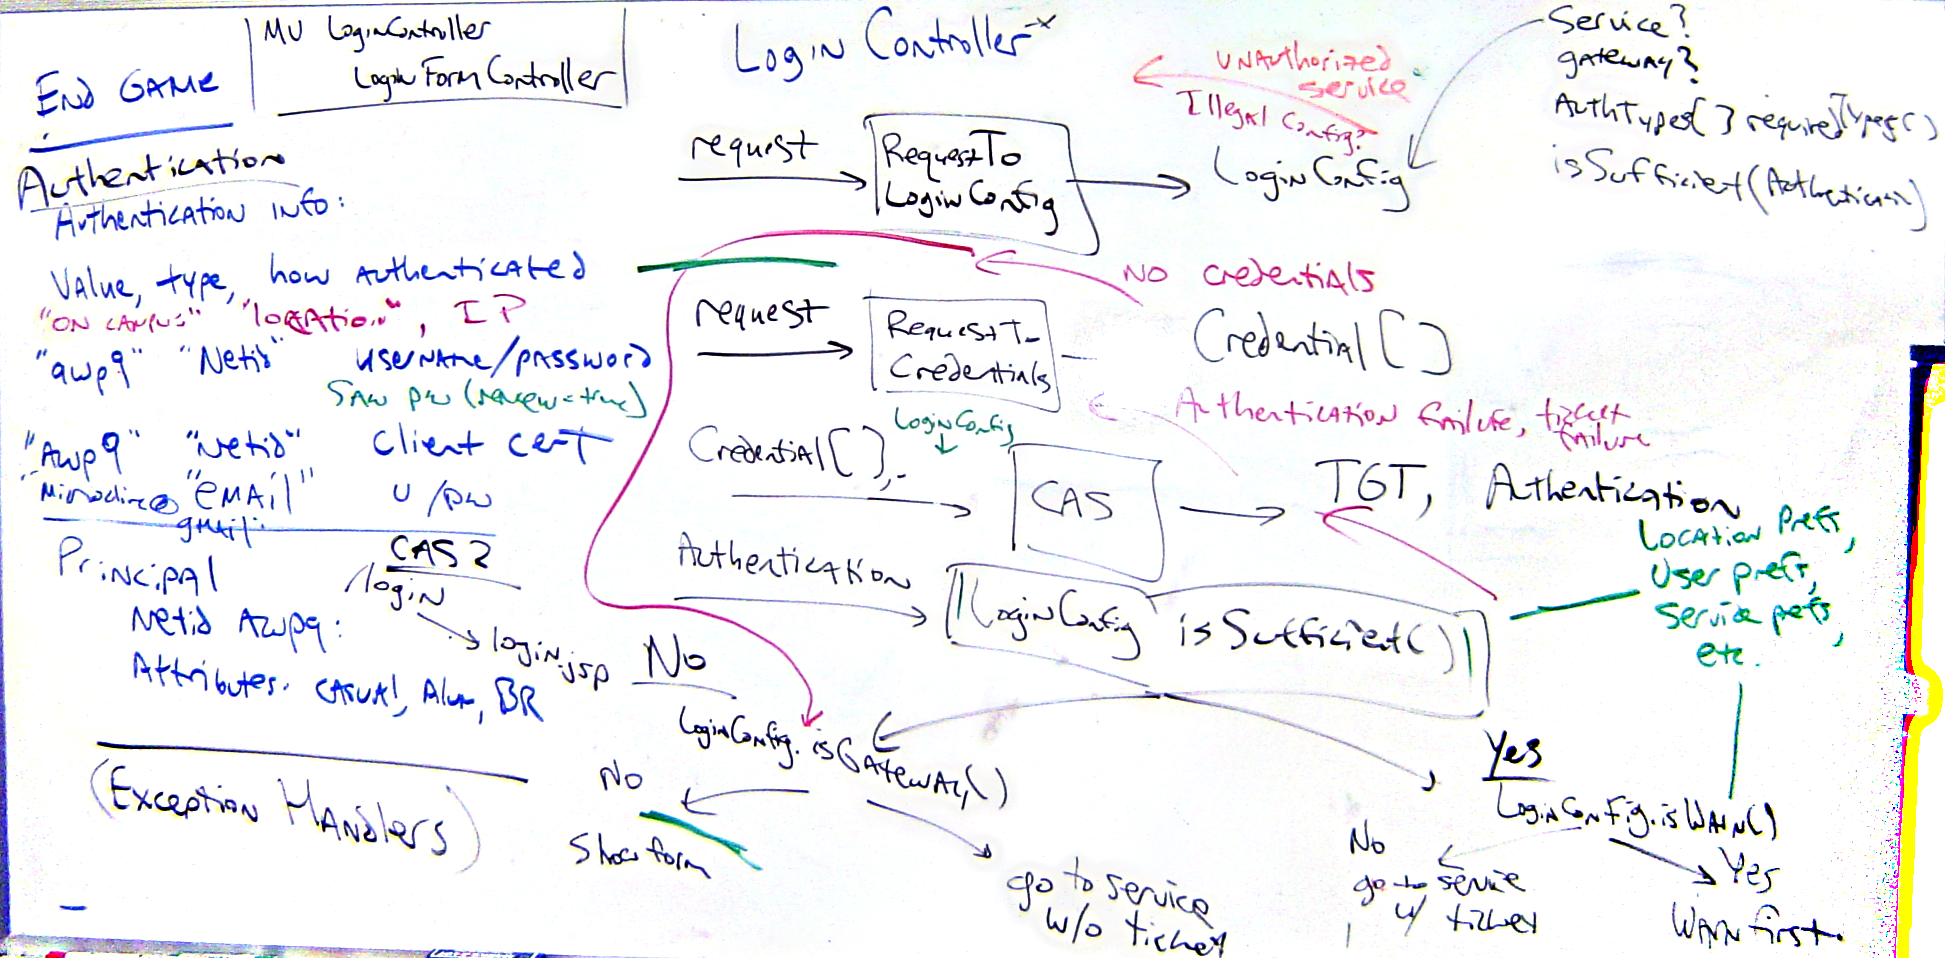 END GAME
MV LoginController
Login Form Controller
Authentication
Authentication info:
Value, type, how authenticated
"ON CAMPUS" "location", IP
"awp9" "Netid" username/password
Saw pw (renew=true)
"Awp9" "Netid" client cert
"EMAIL" U/pw
gmail.
Principal
Netid Awp9:
Attributes: casual, Alum, BR
CAS2
/login
login.jsp
(Exception Handlers)
Login Controller
request
RequestTo
LoginConfig
LoginConfig
UNAuthorized
service
Illegal Config?
Service?
gateway?
AuthTypes[] requiredTypes()
isSufficient(Authentication)
request
RequestTo
Credentials
NO credentials
Credential[]
Authentication failure, ticket
failure
LoginConfig
Credential[],
CAS
TGT, Authentication
Authentication
LoginConfig isSufficient()
Location prefs,
User prefs,
service prefs,
etc.
No
LoginConfig.isGateway()
No
Show form
go to service
w/o ticket
Yes
LoginConfig.isWarn()
No
go to service
w/ ticket
Yes
Warn first.